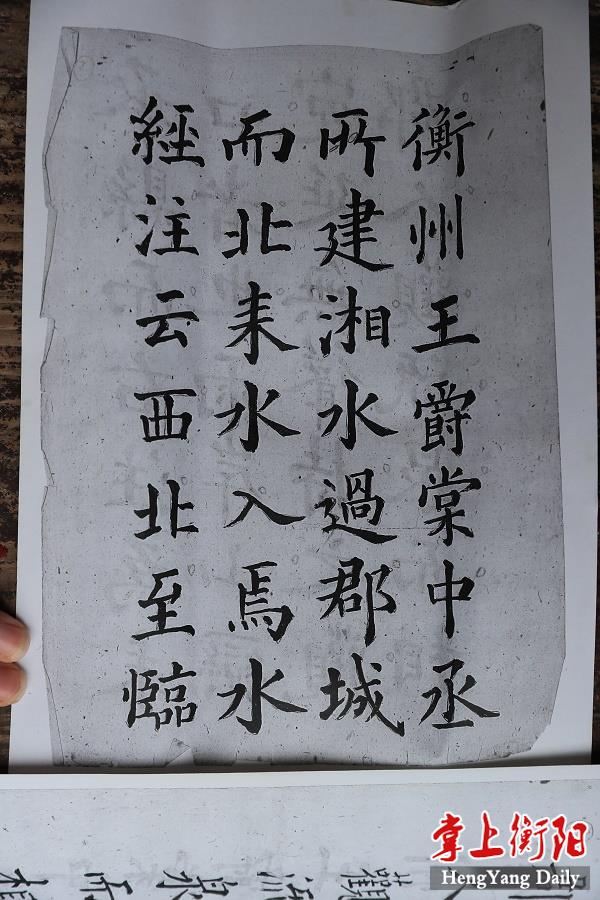 衡州王爵棠中丞
所建湘水過郡城
而北耒水入焉水
經注云西北至臨
觀
流
泉
而
相
掌上衡阳
HengYang Daily